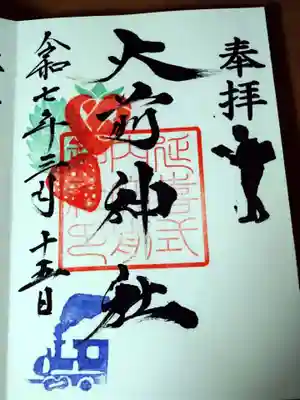 奉拝
大前神社
延喜式
内大前
令和七年三月十五日